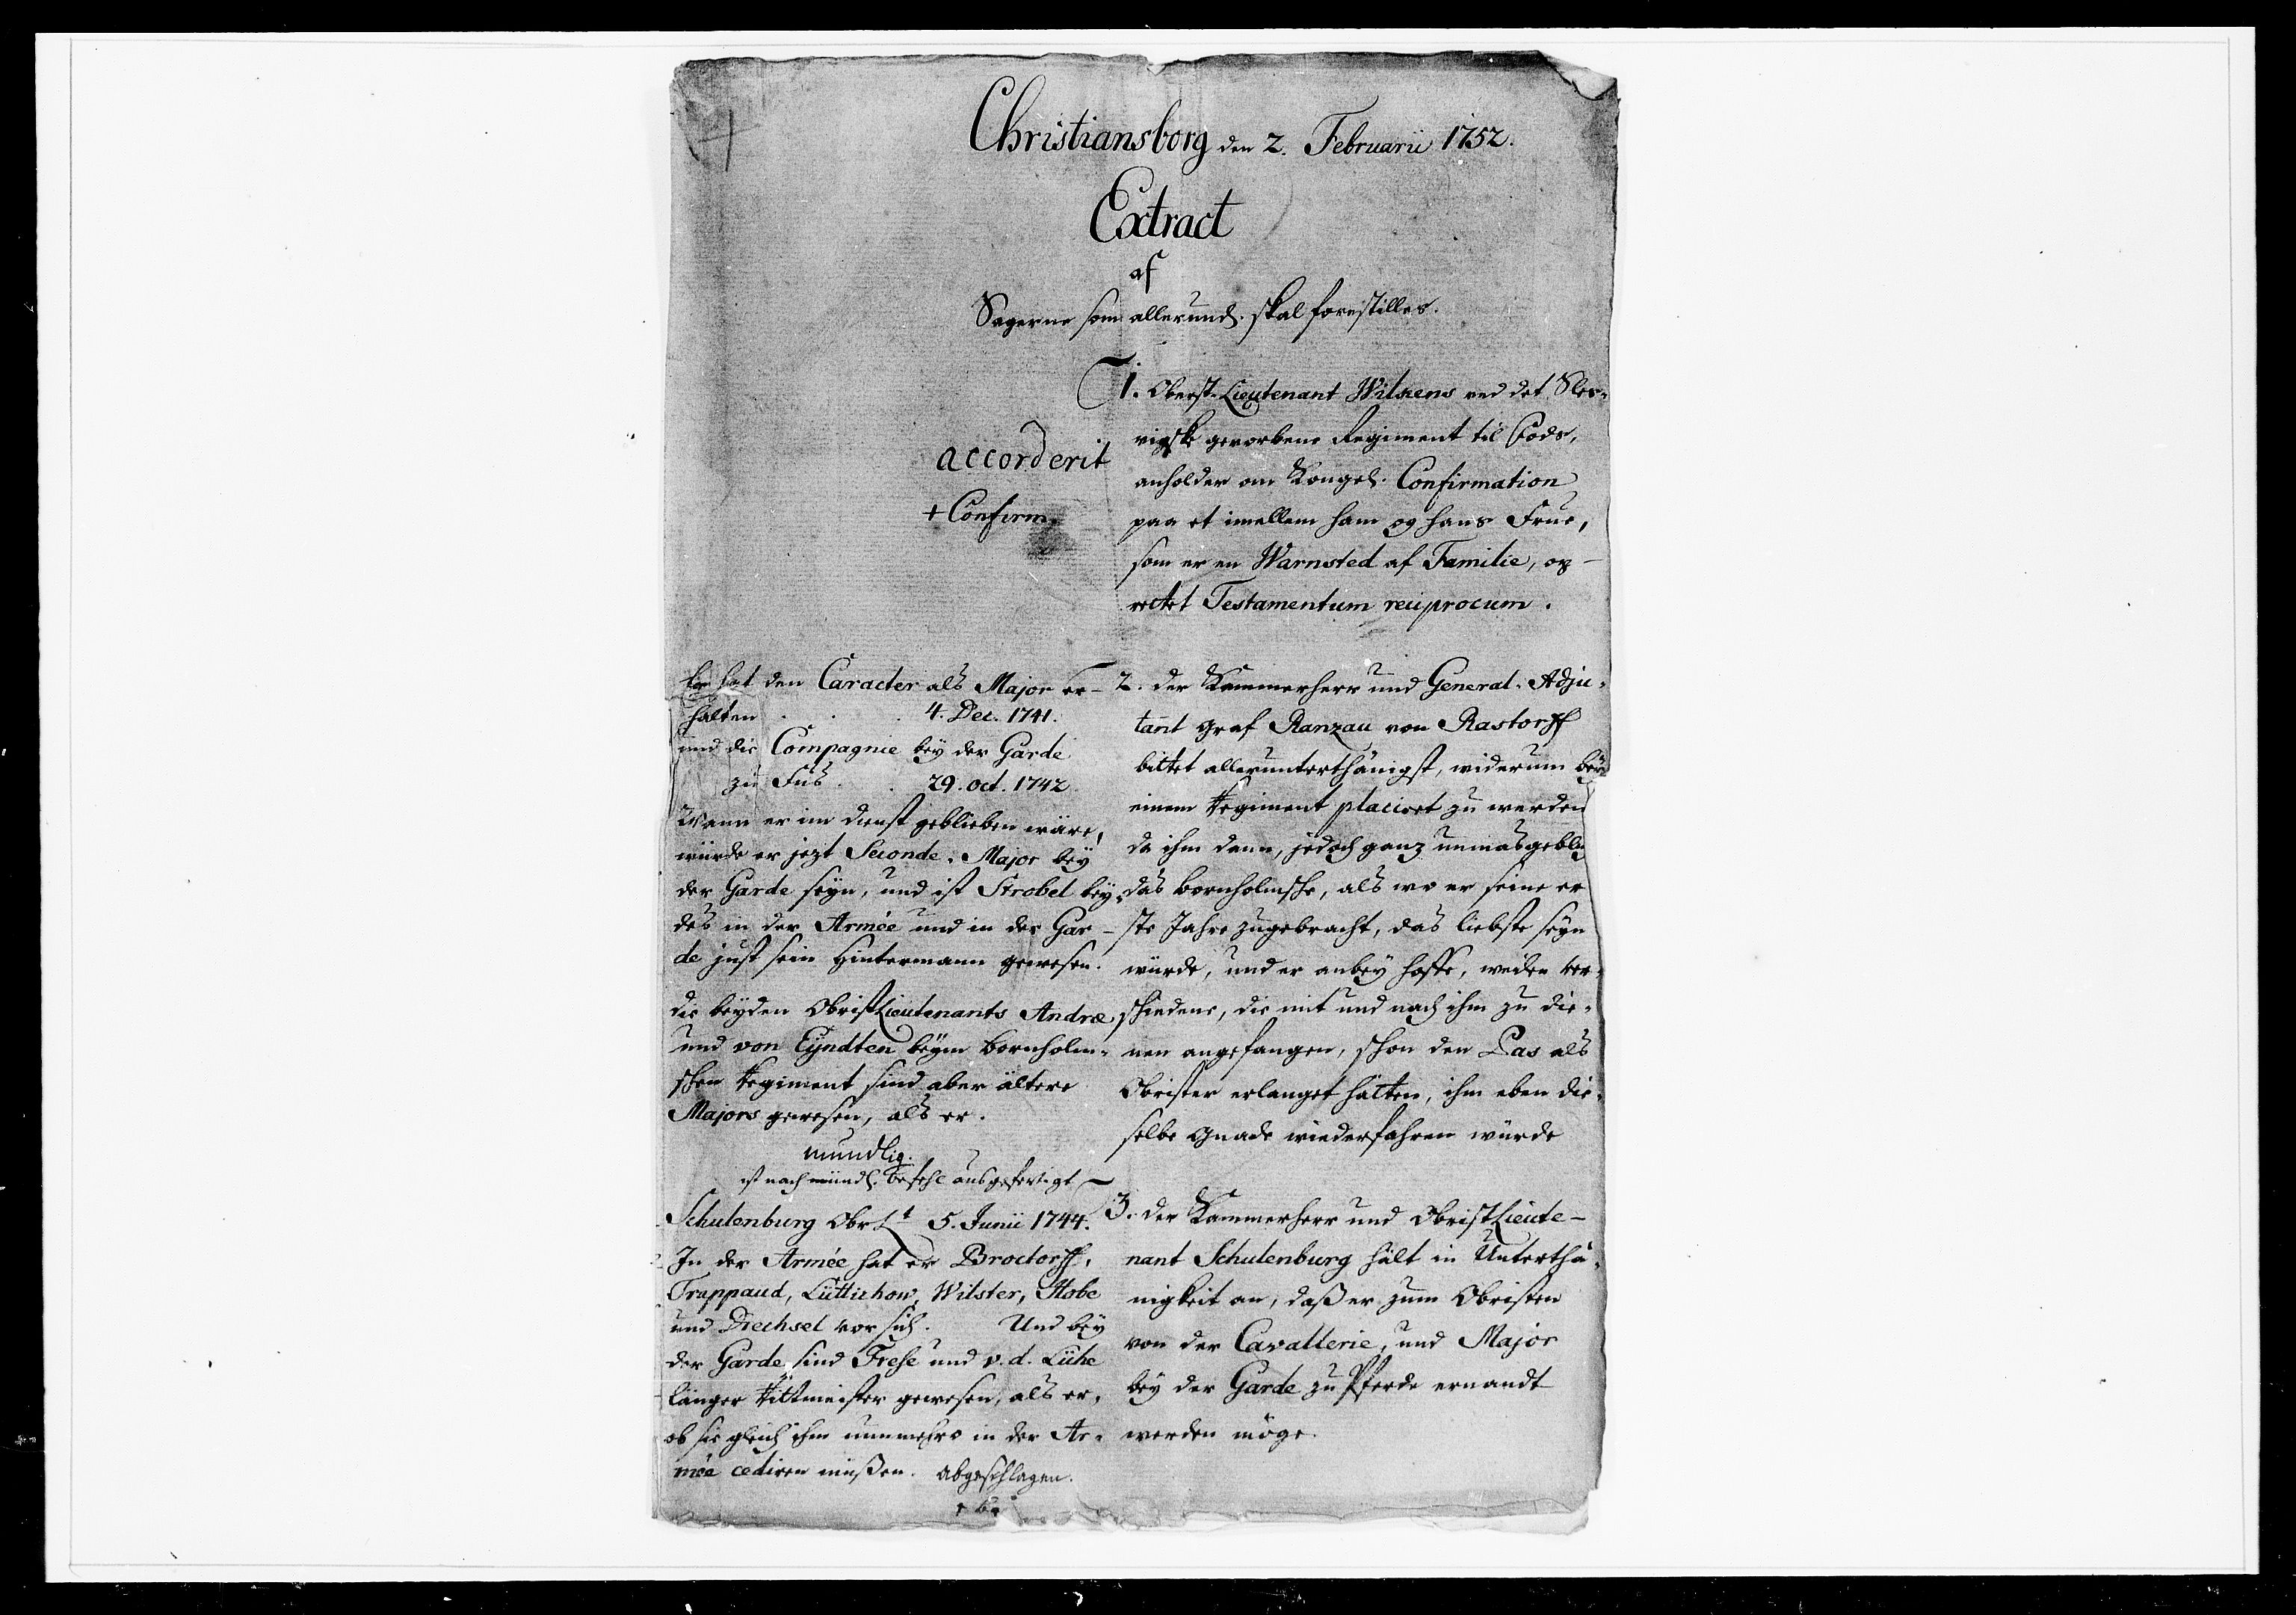 Christiansborg den 2. Februarii 1752.
Extract
af
Sagerne som allerund. skal forestilles.
1. Oberst-Lieutenant Wilkens ved det Sles-
vigske gevorbene Regiment til Fods,
anholder om Kongel. Confirmation
paa et imellem ham og hans Frue,
som er en Warnsted af Familie, op-
rettet Testamentum reciprocum.
accorderit
+ Confirm.
2. der Kammerherr und General-Adju-
tant Graf Ranzau von Rastorff
bittet allerunterthänigst, widerum bey
einem Regiment placiret zu werden
da ihm dann, jedoch ganz unmasgebl.
das bornholmsche, als wo er seine er
ste Jahre zugebracht, das liebste seyn
würde, und er anbey hoffe, weilen ver-
schiedene, die mit und nach ihm zu die-
nen angefangen, schon den Pas als
Obrister erlanget hätten, ihm eben die-
selbe Gnade wiederfahren würde
Er hat den Caracter als Major er-
halten . . . 4. Dec. 1741.
und die Compagnie bey der Garde
zu Fus . . 29. oct. 1742
Wann er im dienst geblieben wäre,
würde er jezt Seconde-Major bey
der Garde seyn, und ist Strobel bey-
des in der Armée und in der Gar-
de just sein Hintermann gewesen.
die beyden ObristLieutenants Andræ
und von Eyndten beym bornholm-
schen Regiment sind aber ältere
Majors gewesen, als er.
mundlig.
ist nach mündl. befehl ausgefertigt
3. der Kammerherr und ObristLieute-
nant Schulenburg hält in Unterthä-
nigkeit an, daß er zum Obristen
von der Cavallerie, und Major
bey der Garde zu Pferde ernandt
werden möge.
Schulenburg Obr Lt 5. Junii 1744.
In der Armée hat er Brocktorff,
Trappaud, Lüttichow, Wilster, Hobe
und Drechsel vor sich. Und bey
der Garde sind Frese und v. d. Lühe
länger Rittmeister gewesen, als er,
ob sie gleich ihm nunmehro in der Ar-
mée cediren müßen. abgeschlagen.